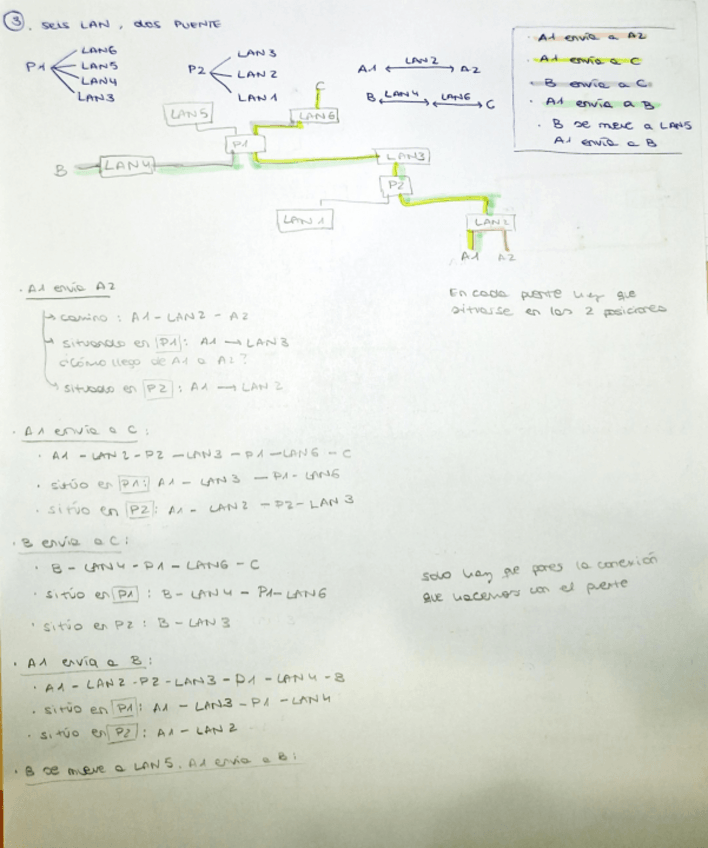 3. SEIS LAN, DOS PUENTE
P1 LAN6 LAN5 LAN4 LAN3
P2 LAN3 LAN2 LAN1
A1 LAN2 A2
B LAN4 LAN6 C
· A1 envia a A2
· A1 envia a C
· B envia a C
· A1 envia a B
· B se mueve a LAN5
A1 envia a B
C
LAN5
LAN6
P1
B
LAN4
LAN3
P2
LAN1
LAN2
A1 A2
· A1 envia A2
camino : A1 - LAN2 - A2
situando en P1 : A1 → LAN3
¿Cómo llego de A1 a A2?
situado en P2 : A1 → LAN2
En cada puente hay que
situarse en las 2 posiciones
· A1 envia a C :
· A1 - LAN2 - P2 - LAN3 - P1 - LAN6 - C
· sitúo en P1: A1 - LAN3 - P1 - LAN6
· sitúo en P2: A1 - LAN2 - P2 - LAN3
· B envia a C :
· B - LAN4 - P1 - LAN6 - C
· sitúo en P1 : B - LAN4 - P1 - LAN6
· sitúo en P2 : B - LAN3
solo hay que poner la conexión
que hacemos con el puente
· A1 envia a B :
· A1 - LAN2 - P2 - LAN3 - P1 - LAN4 - B
· sitúo en P1 : A1 - LAN3 - P1 - LAN4
· sitúo en P2 : A1 - LAN2
· B se mueve a LAN5. A1 envia a B :